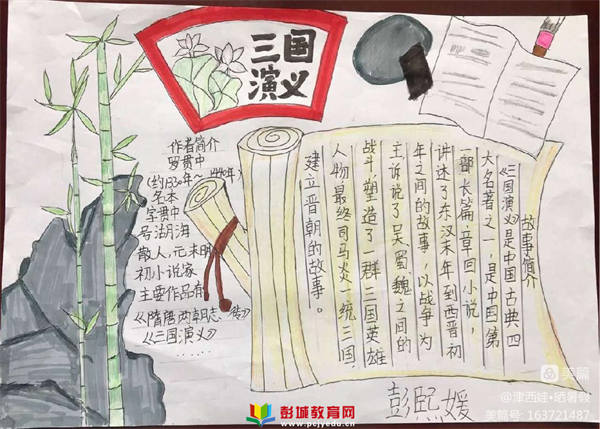 三国
演义
作者简介
罗贯中
(约1330年~
名本
字贯中
号湖海
散人，元末明
初小说家
主要作品有
《隋唐两朝志传》
《三国演义》
……
故事简介
《三国演义》是中国古典四
大名著之一，是中国第
一部长篇章回小说，
讲述了东汉末年到西晋初
年之间的故事，以战争为
主诉说了吴、蜀、魏之间的
战斗，塑造了一群三国英雄
人物最终司马炎一统三国，
建立晋朝的故事。
彭熙媛
美篇
@津西娃•晒暑假
美篇号: 163721487
彭城教育网